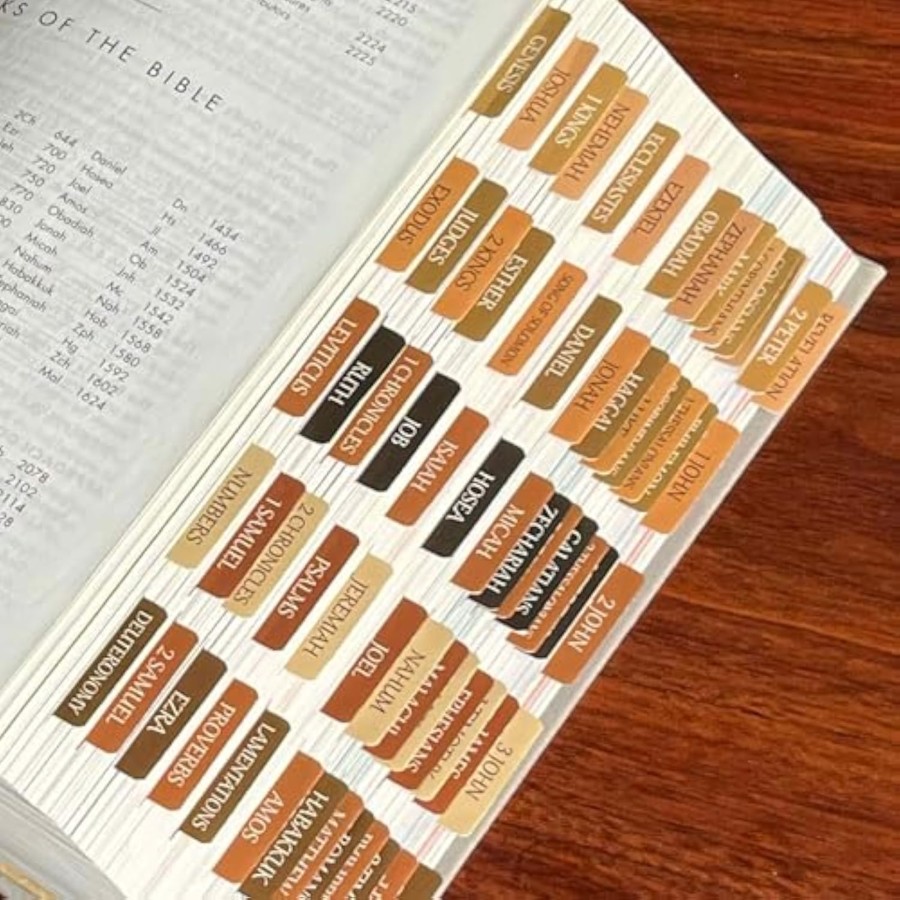 2215
2220
2224
2225
KS OF THE BIBLE
2Ch 644 Daniel Dn 1434
Ezr 700 Hosea Hs 1466
720 Joel Jl 1492
750 Amos Am 1504
770 Obadiah Ob 1524
830 Jonah Jnh 1532
Micah Mc 1542
Nahum Nah 1558
Habakkuk Hab 1568
ephaniah Zph 1580
ggai Hg 1592
riah Zch 1602
Mal 1624
2078
2102
2114
GENESIS
JOSHUA
1 KINGS
NEHEMIAH
ECCLESIASTES
EZEKIEL
OBADIAH
ZEPHANIAH
2 PETER
REVELATION
EXODUS
JUDGES
2 KINGS
ESTHER
SONG OF SOLOMON
DANIEL
JONAH
HAGGAI
1 JOHN
LEVITICUS
RUTH
1 CHRONICLES
JOB
ISAIAH
HOSEA
MICAH
ZECHARIAH
GALATIANS
2 JOHN
NUMBERS
1 SAMUEL
2 CHRONICLES
PSALMS
JEREMIAH
JOEL
NAHUM
MALACHI
EPHESIANS
JAMES
3 JOHN
DEUTERONOMY
2 SAMUEL
EZRA
PROVERBS
LAMENTATIONS
AMOS
HABAKKUK
MATTHEW
ROMANS